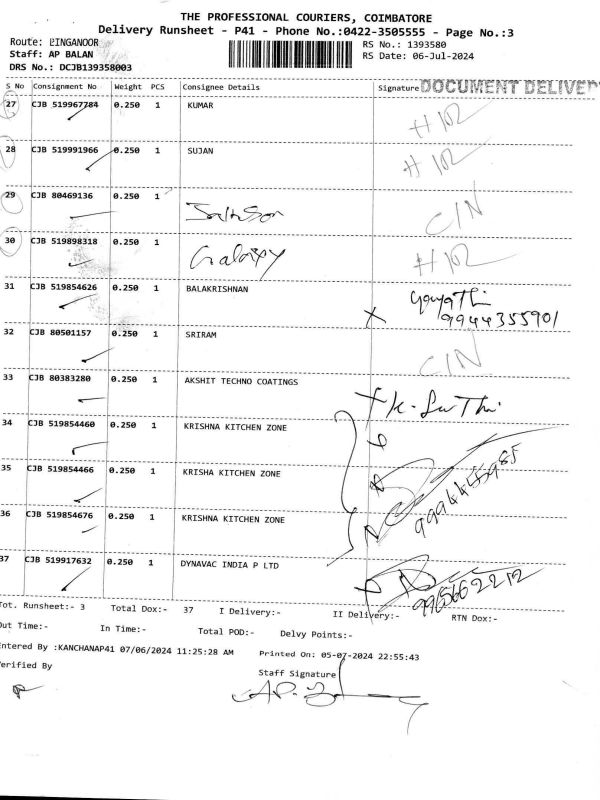 THE PROFESSIONAL COURIERS, COIMBATORE
Delivery Runsheet - P41 - Phone No.:0422-3505555 - Page No.:3
Route: PINGANOOR
RS No.: 1393580
Staff: AP BALAN
RS Date: 06-Jul-2024
DRS No.: DCJB139358003
S No Consignment No Weight PCS Consignee Details Signature DOCUMENT DELIVERY
27 CJB 519967784 0.250 1 KUMAR # 102
28 CJB 519991966 0.250 1 SUJAN # 102
29 CJB 80469136 0.250 1 C/N
30 CJB 519898318 0.250 1 Galaxy # 102
31 CJB 519854626 0.250 1 BALAKRISHNAN
9944355901
32 CJB 80501157 0.250 1 SRIRAM C/N
33 CJB 80383280 0.250 1 AKSHIT TECHNO COATINGS
34 CJB 519854460 0.250 1 KRISHNA KITCHEN ZONE
35 CJB 519854466 0.250 1 KRISHA KITCHEN ZONE
9994455985
36 CJB 519854676 0.250 1 KRISHNA KITCHEN ZONE
37 CJB 519917632 0.250 1 DYNAVAC INDIA P LTD
Tot. Runsheet:- 3 Total Dox:- 37 I Delivery:- II Delivery:- RTN Dox:-
Out Time:- In Time:- Total POD:- Delvy Points:-
Entered By :KANCHANAP41 07/06/2024 11:25:28 AM Printed On: 05-07-2024 22:55:43
Verified By
Staff Signature